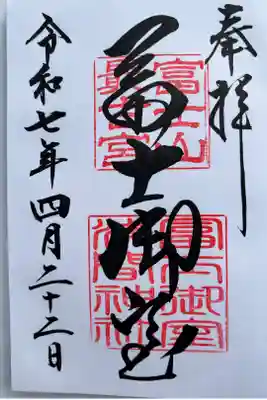 奉拝
冨士御室
富士山
最古宮
富士御室
浅間神社
令和七年四月二十二日